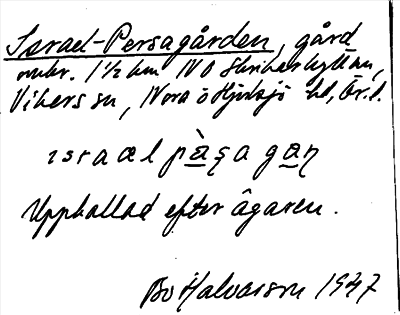 Israel-Persagården, gård
omkr. 1 ½ km NO Skrikarhyttan,
Vikers sn, Nora o Hjulsjö bl, Ör. l.
ısraæl pàṣa gaɳ
Uppkallad efter ägaren.
Bo Halvarson 1947